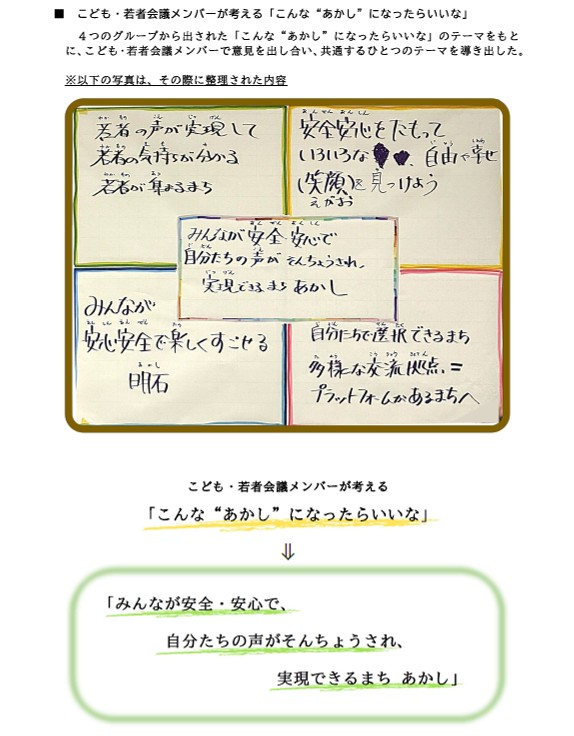 ■ こども・若者会議メンバーが考える「こんな“あかし”になったらいいな」
４つのグループから出された「こんな“あかし”になったらいいな」のテーマをもと
に、こども・若者会議メンバーで意見を出し合い、共通するひとつのテーマを導き出した。
※以下の写真は、その際に整理された内容
若者の声が実現して
若者の気持ちが分かる
若者が集まるまち
安全安心をたもって
いろいろな♥♥、自由や幸せ
(笑顔)を見つけよう
えがお
みんなが安全安心で
自分たちの声がそんちょうされ、
実現できるまち あかし
みんなが
安心安全で楽しくすごせる
明石
自分たちで選択できるまち
多様な交流拠点、=
プラットフォームがあるまちへ
こども・若者会議メンバーが考える
「こんな“あかし”になったらいいな」
⇓
「みんなが安全・安心で、
自分たちの声がそんちょうされ、
実現できるまち あかし」